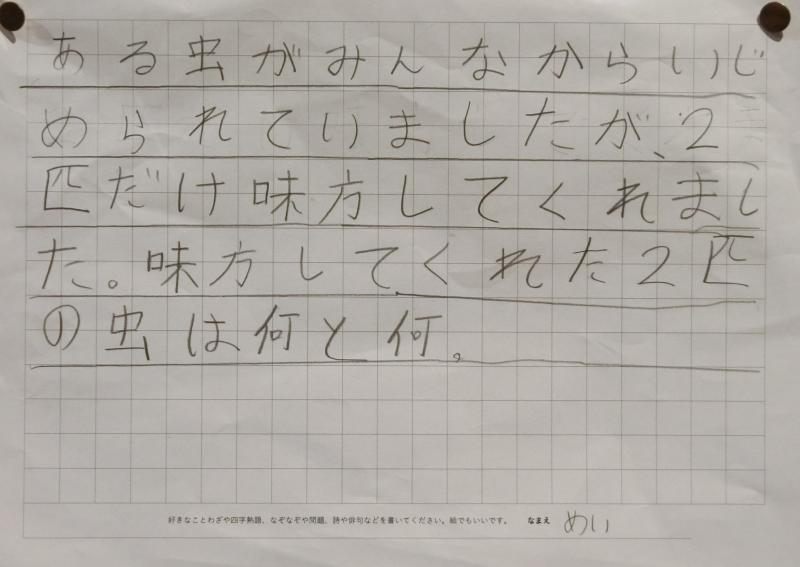 ある虫がみんなからいじ
められていましたが、2
匹だけ味方してくれまし
た。味方してくれた2匹
の虫は何と何。
好きなことわざや四字熟語、なぞなぞや問題、詩や俳句などを書いてください。絵でもいいです。 なまえ めい